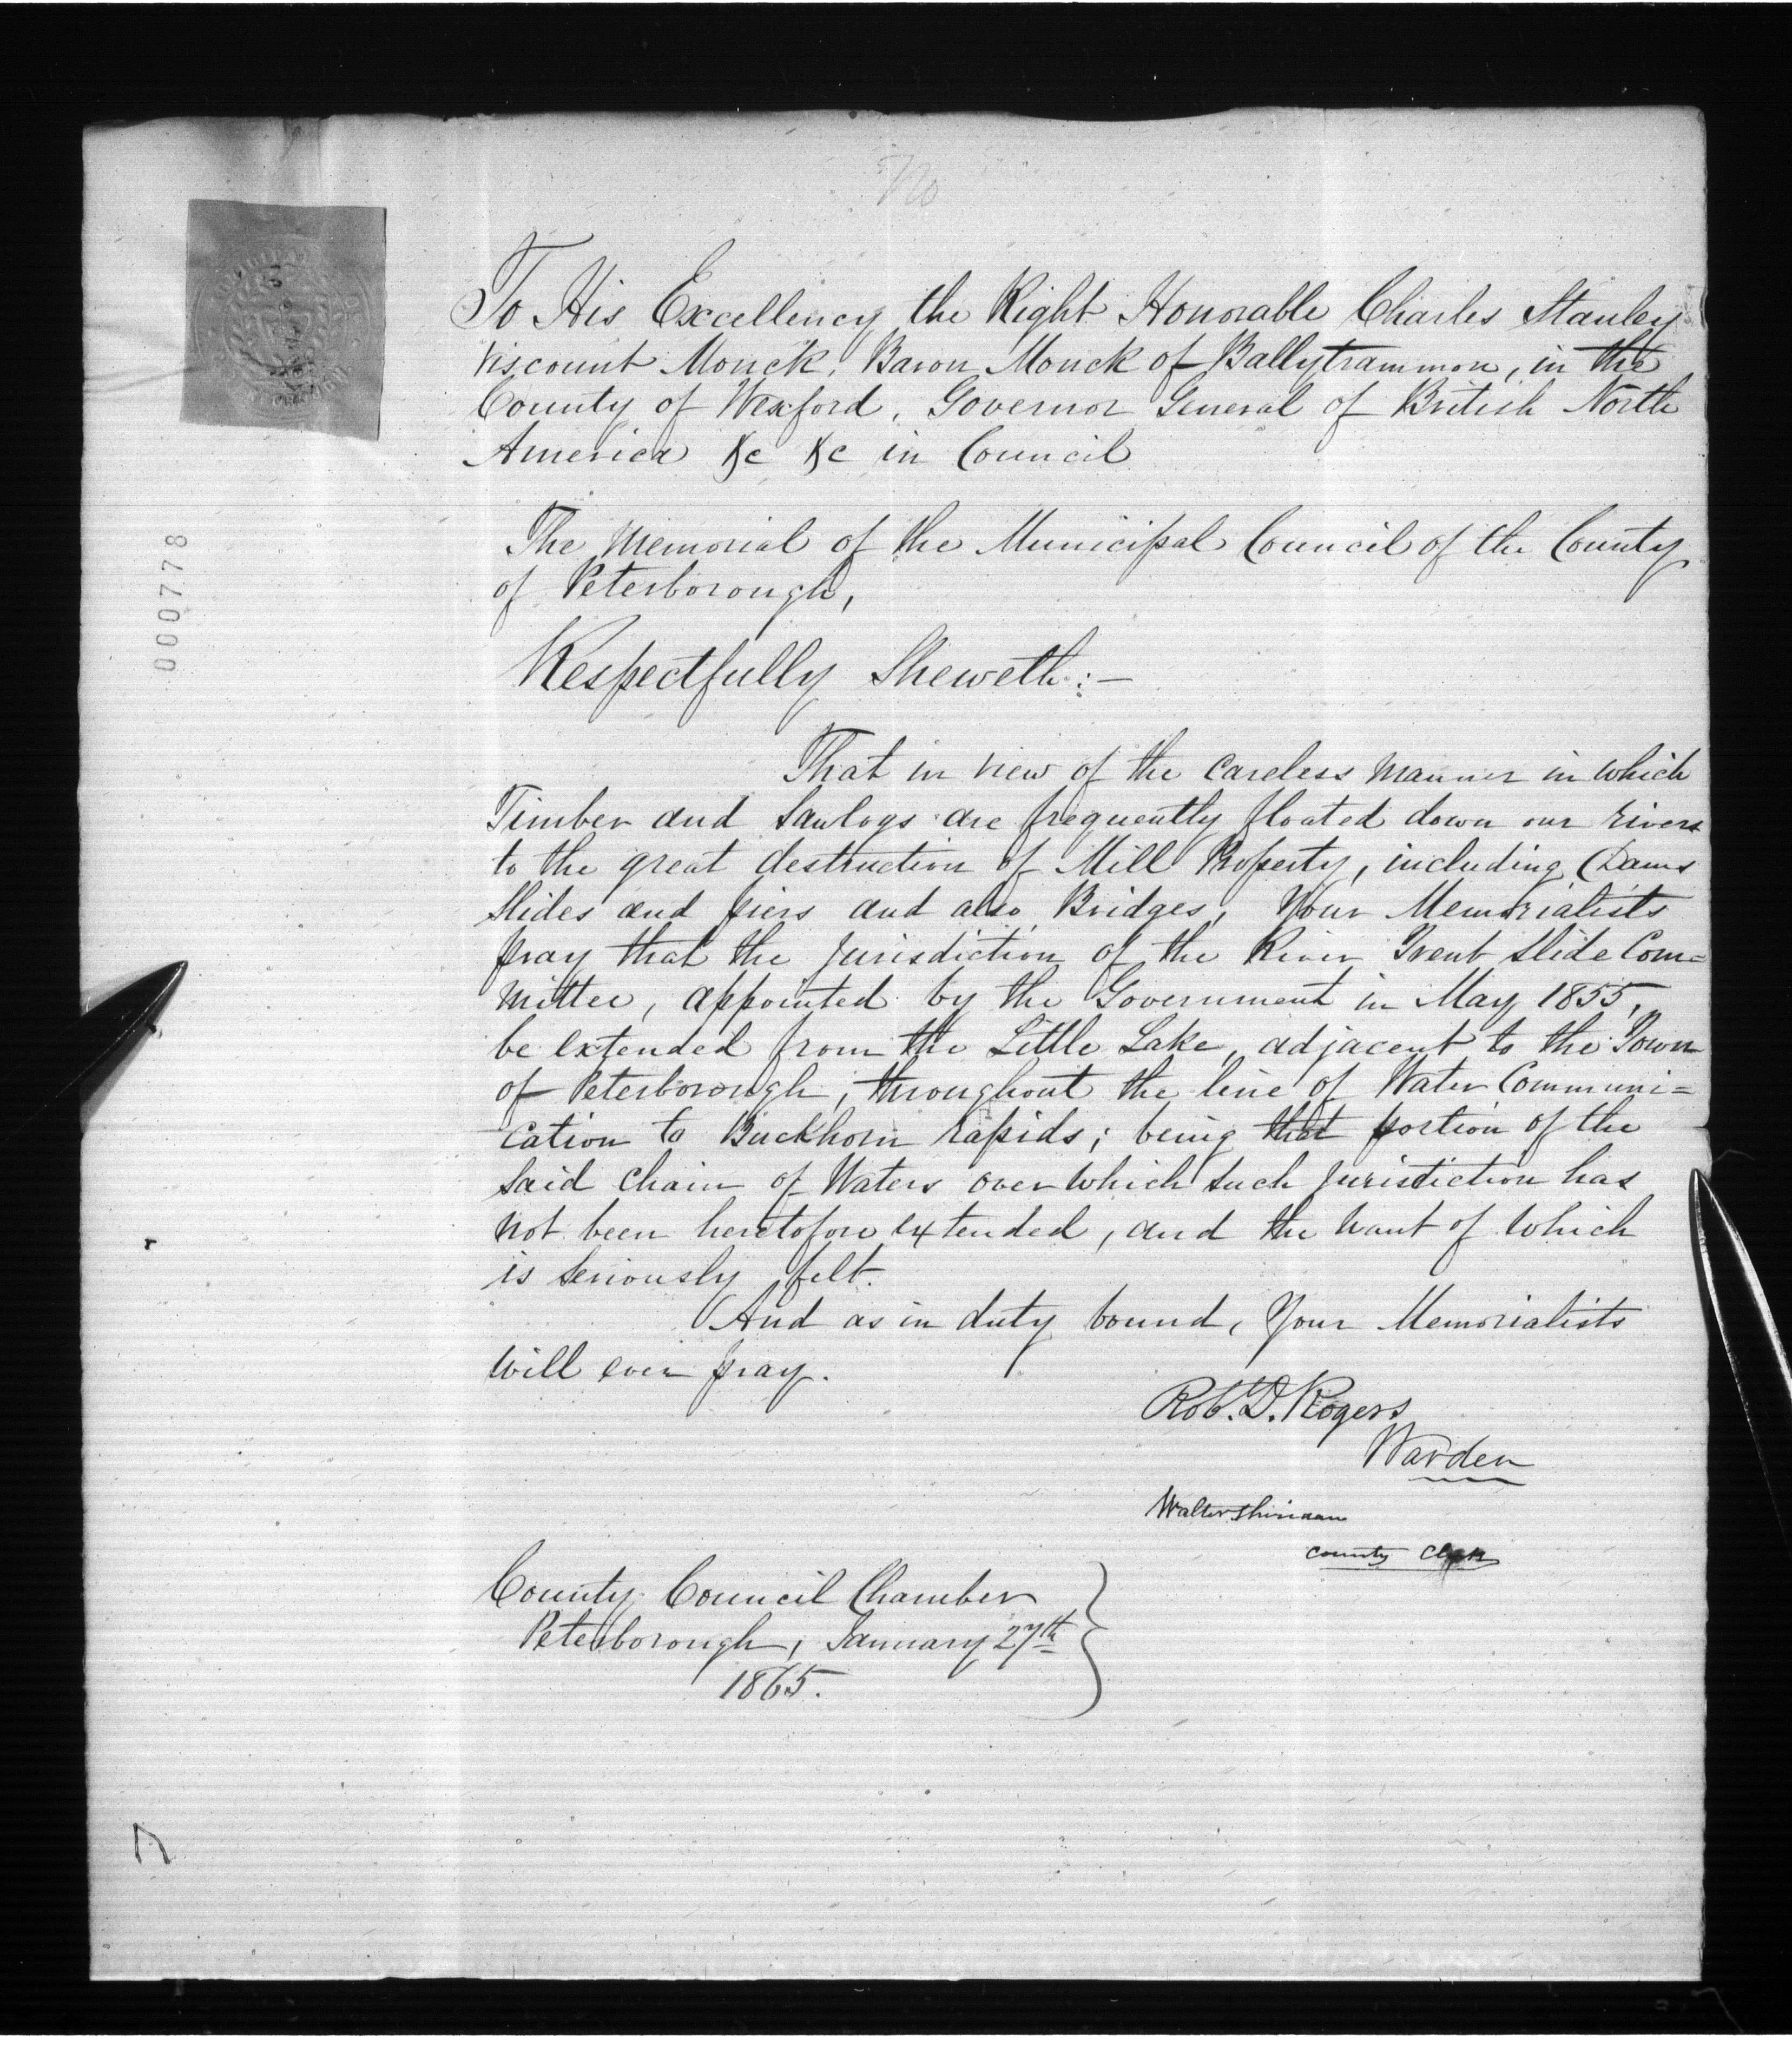 To His Excellency the Right Honorable Charles Stanley
Viscount Monck, Baron Monck of Ballytrammon, in the
County of Wexford, Governor General of British North
America &c &c in Council
The Memorial of the Municipal Council of the County
of Peterborough,
Respectfully Sheweth:—
That in view of the careless manner in which
Timber and Sawlogs are frequently floated down our rivers
to the great destruction of Mill Property, including Dams
Slides and piers and also Bridges, Your Memorialists
pray that the jurisdiction of the River Trent Slide Com=
mittee, appointed by the Government in May 1855,
be extended from the Little Lake, adjacent to the Town
of Peterborough, throughout the line of Water Communi=
cation to Buckhorn rapids; being that portion of the
said chain of Waters over which such jurisdiction has
not been heretofore extended, and the want of which
is seriously felt.
And as in duty bound, Your Memorialists
will ever pray.
Rob. D. Rogers
Warden
Walter Sheridan
County Clerk
County Council Chamber
Peterborough, January 27th
1865.
000778